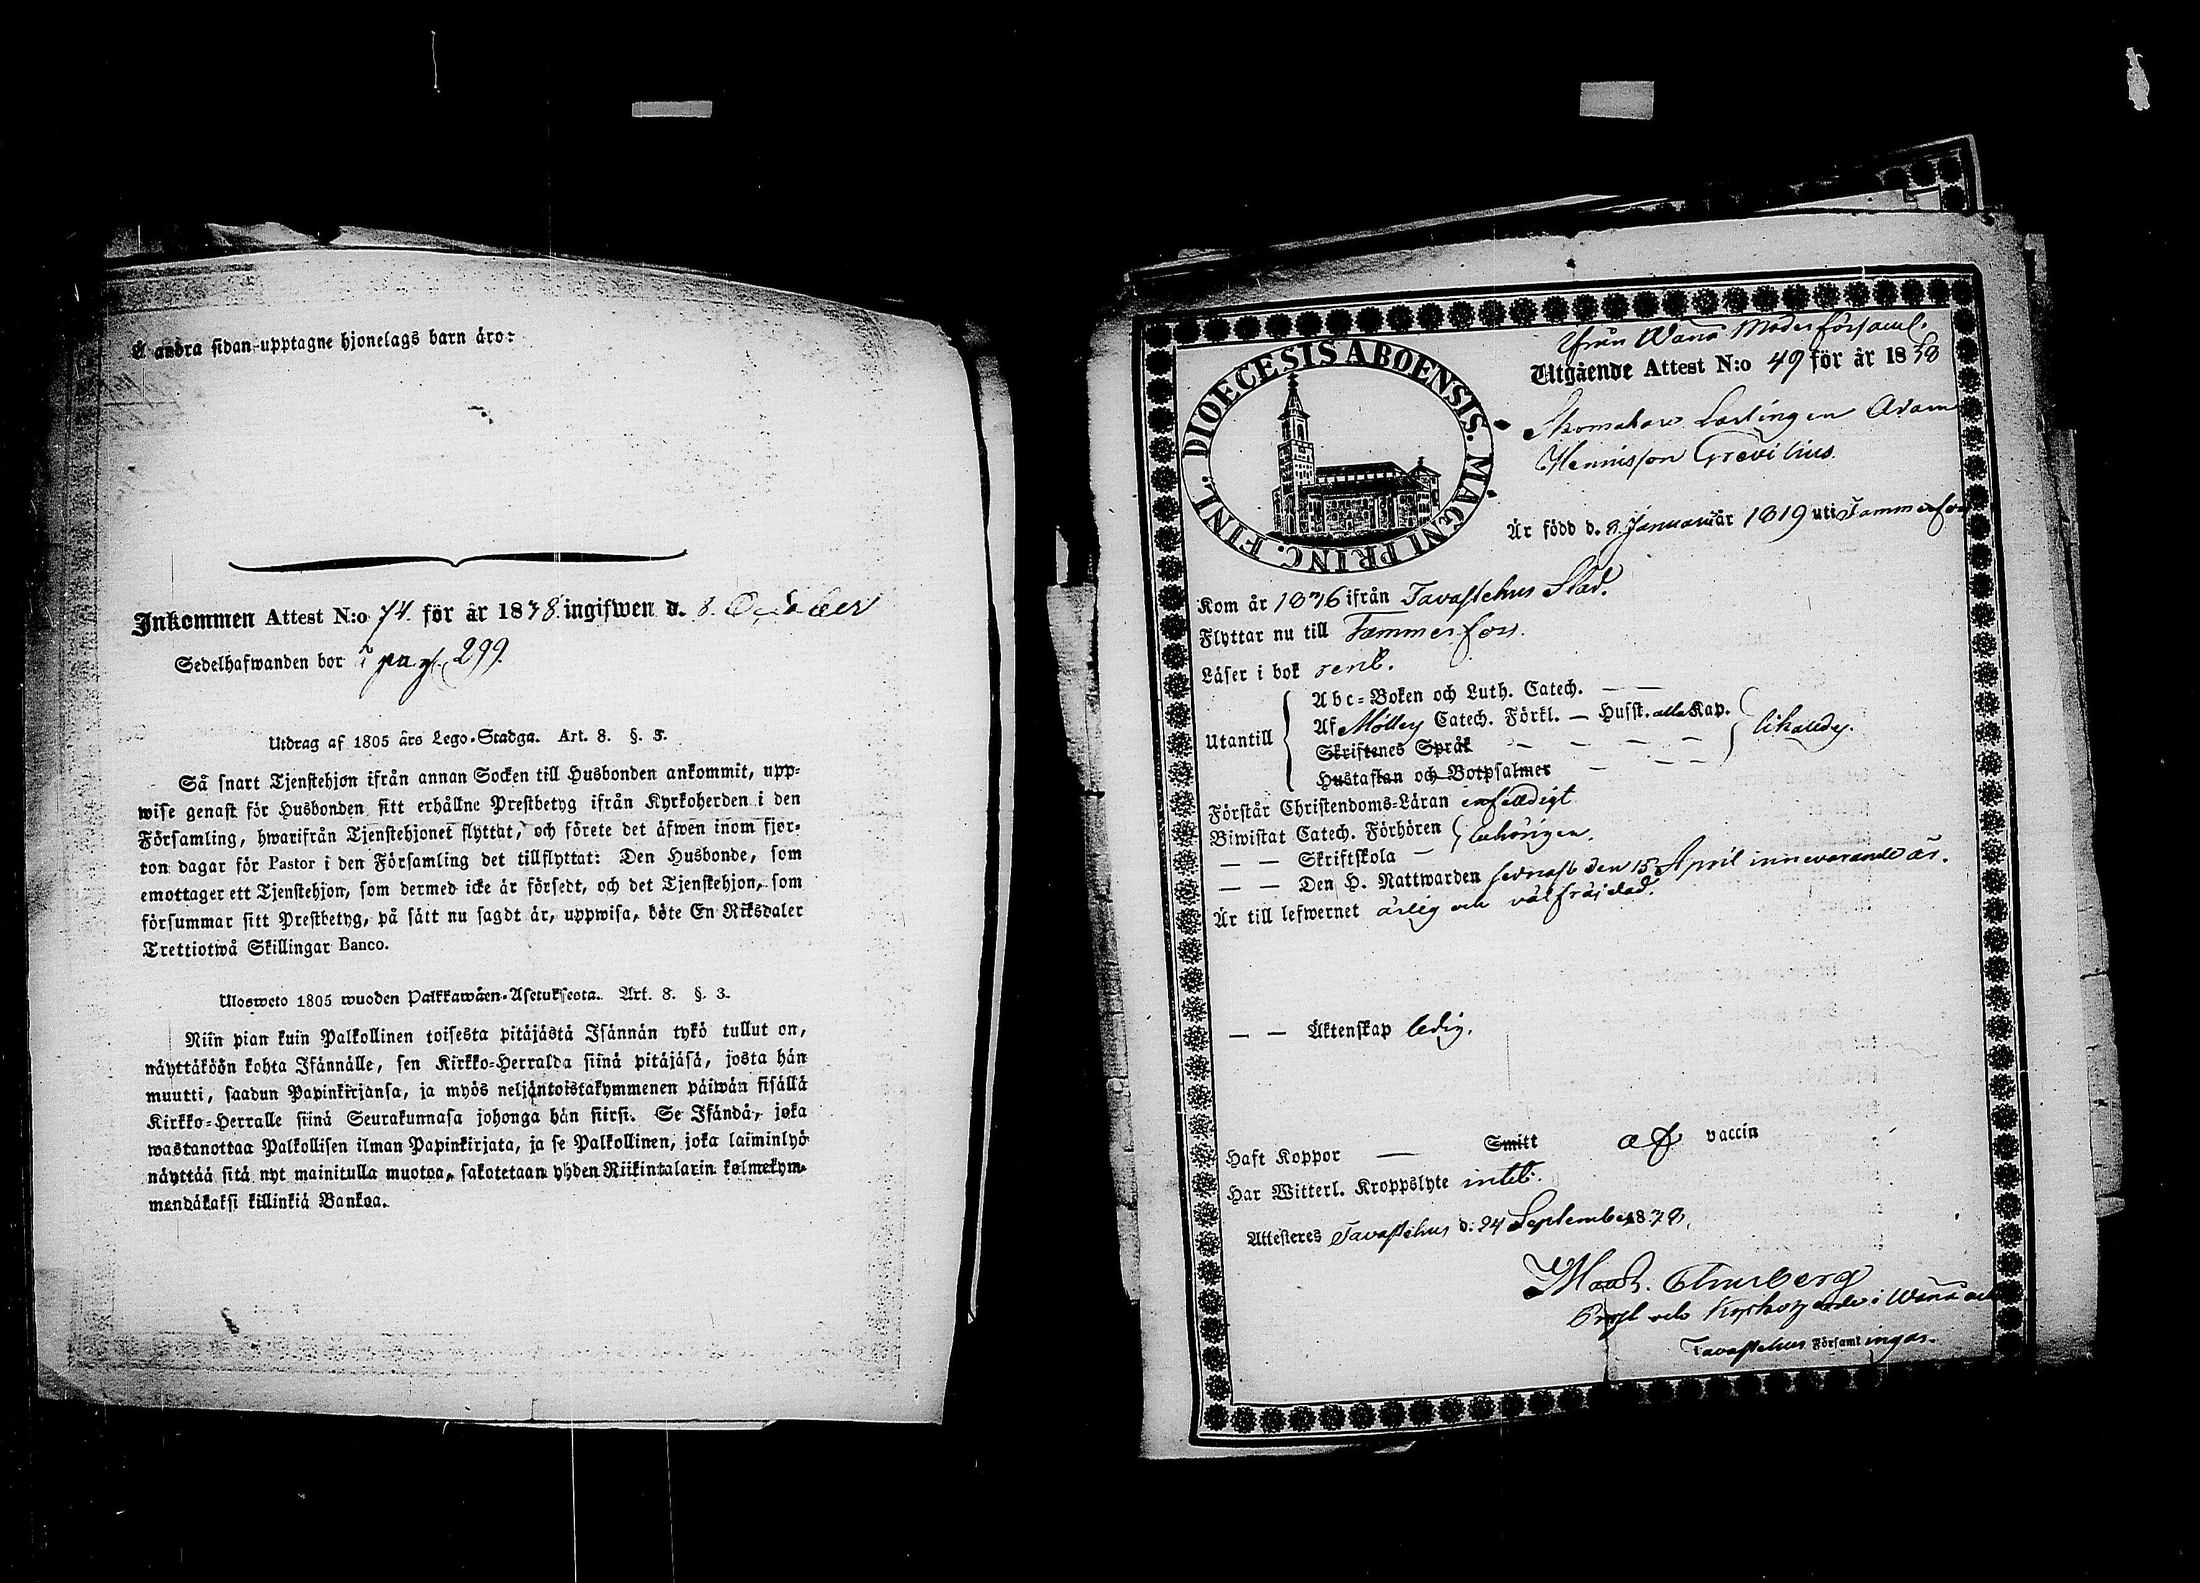 Å andra sidan upptagne hjonelags barn äro:
Inkommen Attest N:o 74. för år 1838. ingifwen d. 8. October
Sedelhafwanden bor å pag. 299.
Utdrag af 1805 års Lego-Stadga. Art. 8. §. 3.
Så snart Tjenstehjon ifrån annan Socken till Husbonden ankommit, upp-
wise genast för Husbonden sitt erhållne Prestbetyg ifrån Kyrkoherden i den
Församling, hwarifrån Tjenstehjonet flyttat, och förete det äfwen inom fjor-
ton dagar för Pastor i den Församling det tillflyttat: Den Husbonde, som
emottager ett Tjenstehjon, som dermed icke är försedt, och det Tjenstehjon, som
försummar sitt Prestbetyg, på sätt nu sagdt är, uppwisa, böte En Riksdaler
Trettiotwå Skillingar Banco.
Ulosweto 1805 wuoden Palkkawäen-Asetuksesta. Art. 8. §. 3.
Niin pian kuin Palkollinen toisesta pitäjästä Isännän tykö tullut on,
näyttäköön kohta Isännälle, sen Kirkko-Herralda siinä pitäjäsä, josta hän
muutti, saadun Papinkirjansa, ja myös neljäntoistakymmenen päiwän sisällä
Kirkko-Herralle siinä Seurakunnasa johonga hän siirsi. Se Isändä, joka
wastanottaa Palkollisen ilman Papinkirjata, ja se Palkollinen, joka laiminlyö
näyttää sitä nyt mainitulla muotoa, sakotetaan yhden Riikintalarin kolmekym-
mendäkaksi killinkiä Bankoa.
DIOECESIS ABOENSIS. MAGNI PRINC. FINL.
ifrån Wånå Moderförsaml.
Utgående Attest N:o 49 för år 1838
Skomakare Lärlingen Adam
Henrisson Grevilius.
Är född d. 2. Januari år 1819 uti Tammerfors
Kom år 1836 ifrån Tavastehus Stad.
Flyttar nu till Tammerfors.
Läser i bok rent.
Utantill
Abc-Boken och Luth. Catech. — —
Af Möllers Catech. Förkl. — Husst. alla Kap.
Skriftenes Språk — — — —
Hustaflan och Botpsalmer — — —
likaledes.
Förstår Christendoms-Läran enfaldigt
Biwistat Catech. Förhören
— — Skriftskola — behörigen.
— — Den H. Nattwarden sednast den 15 April innevarande år.
Är till lefwernet ärlig och välfräjdad.
— — Äktenskap ledig.
Haft Koppor — Smitt af vaccin
Har Witterl. Kroppslyte intet.
Attesteres Tavastehus d. 24 September 1838.
Prost och Kyrkoherde i Wånå och
Tavastehus Församlingar.